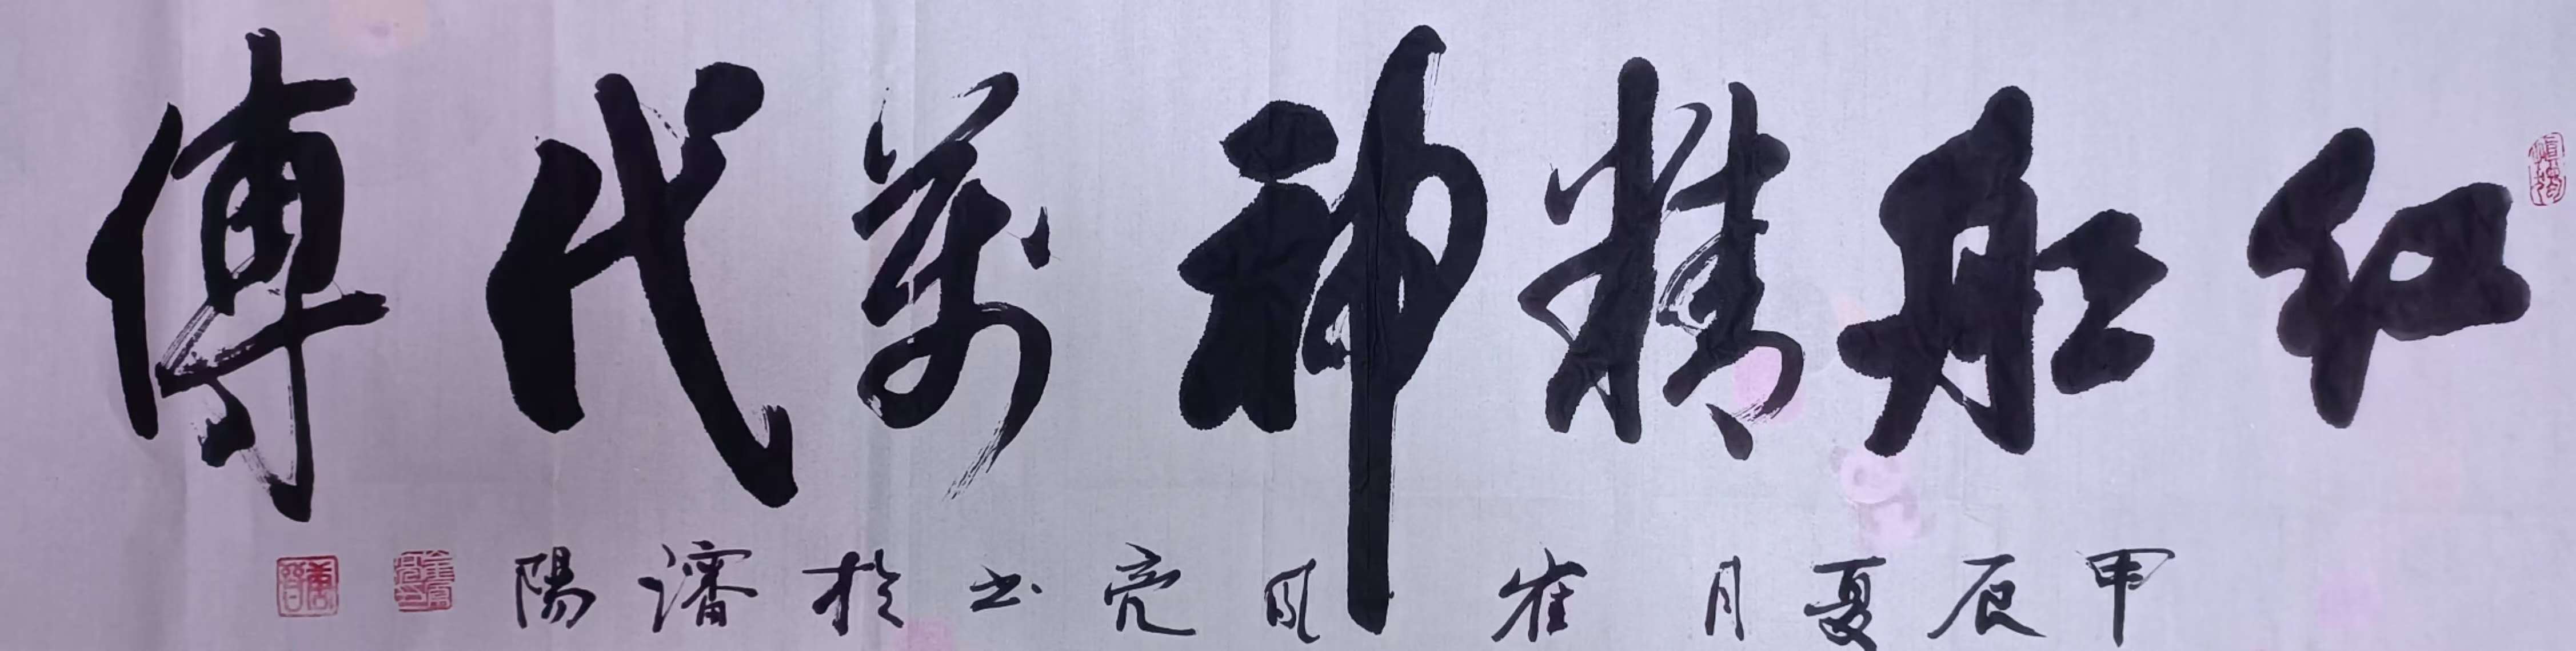 红船精神万代傳
甲辰夏月崔凤亮书於瀋陽